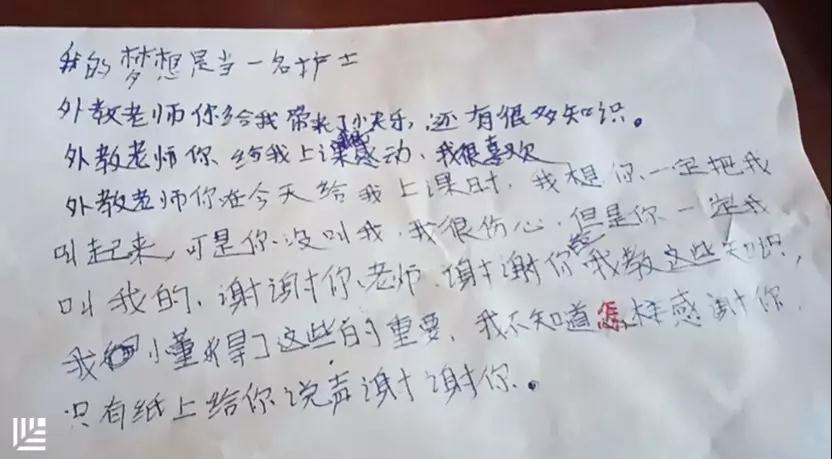 我的梦想是当一名护士
外教老师你给我带来了小快乐,还有很多知识。
外教老师你给我上课感动,我很喜欢
外教老师你在今天给我上课时,我想你一定把我
叫起来,可是你没叫我,我很伤心,但是你一定我
叫我的,谢谢你,老师,谢谢你给我教这些知识,
我懂得了这些的重要,我不知道怎样感谢你,
只有纸上给你说声谢谢你。